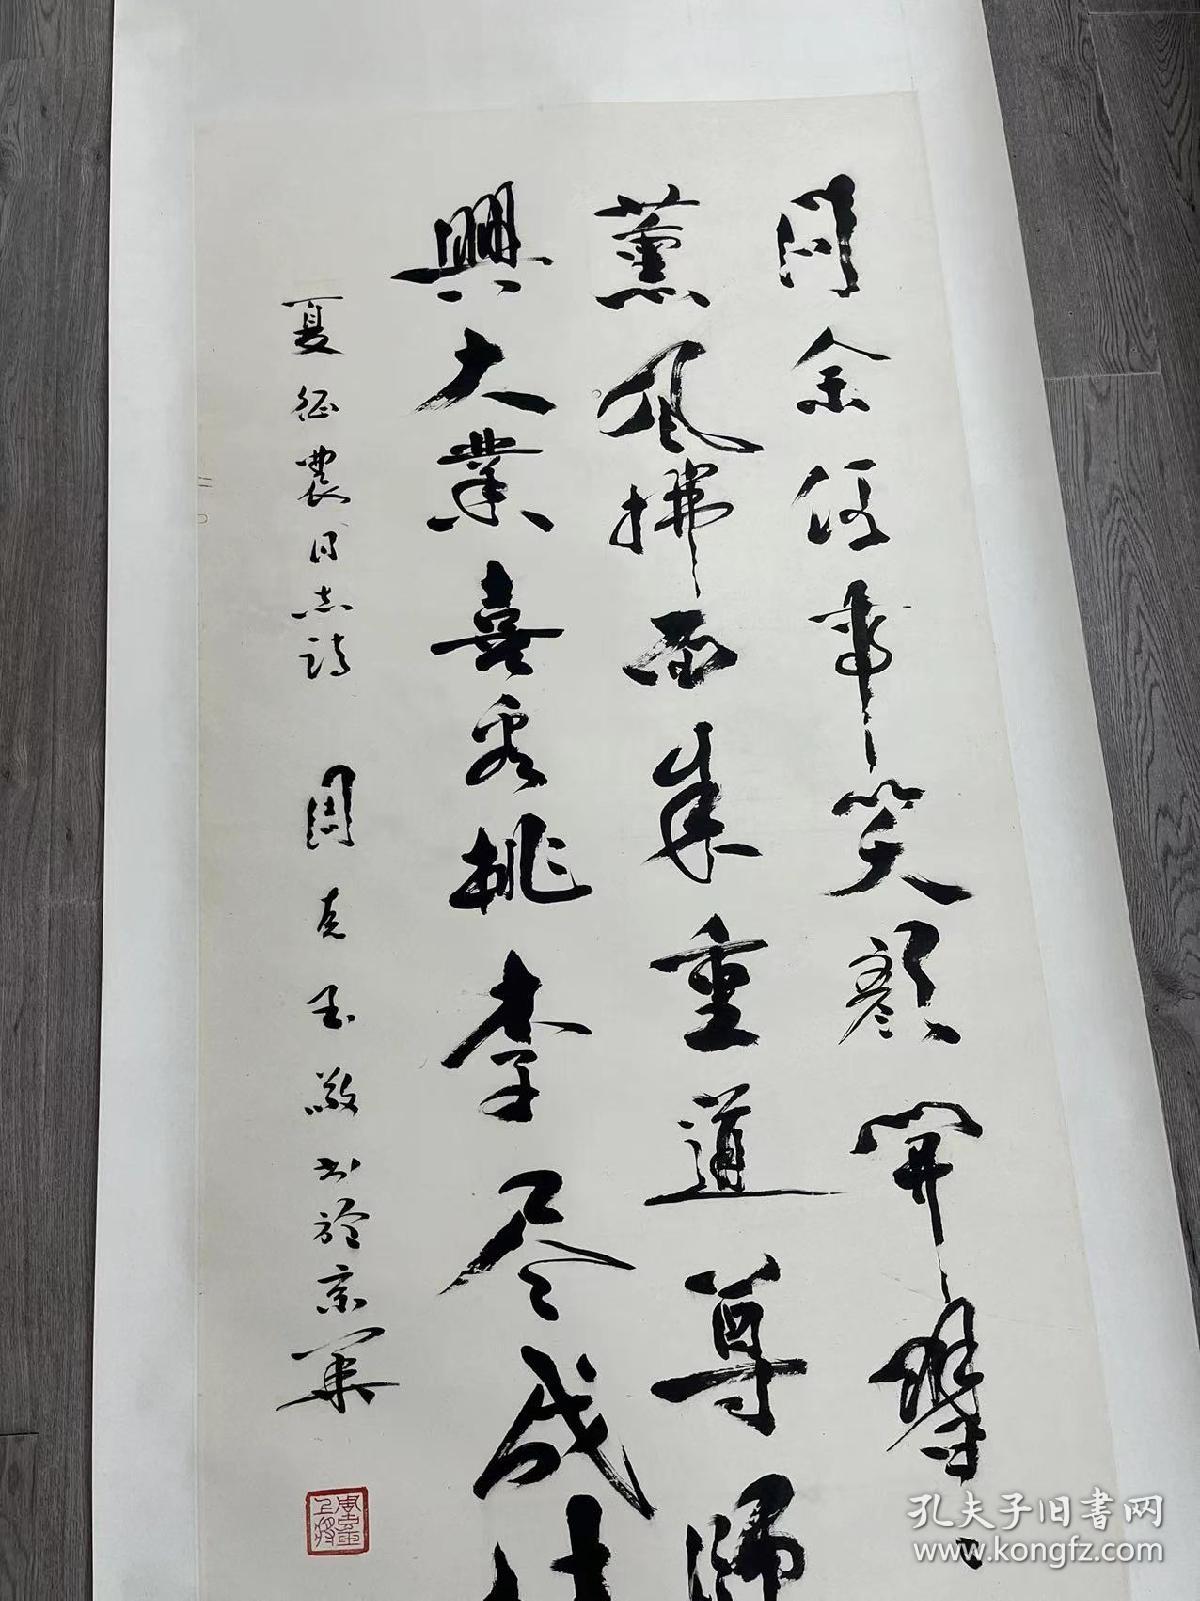 问余何事笑颜开
薰风拂面来重道尊师
兴大业喜看桃李尽成材
夏征农同志诗 周克玉敬书于京华
孔夫子旧书网
www.kongfz.com